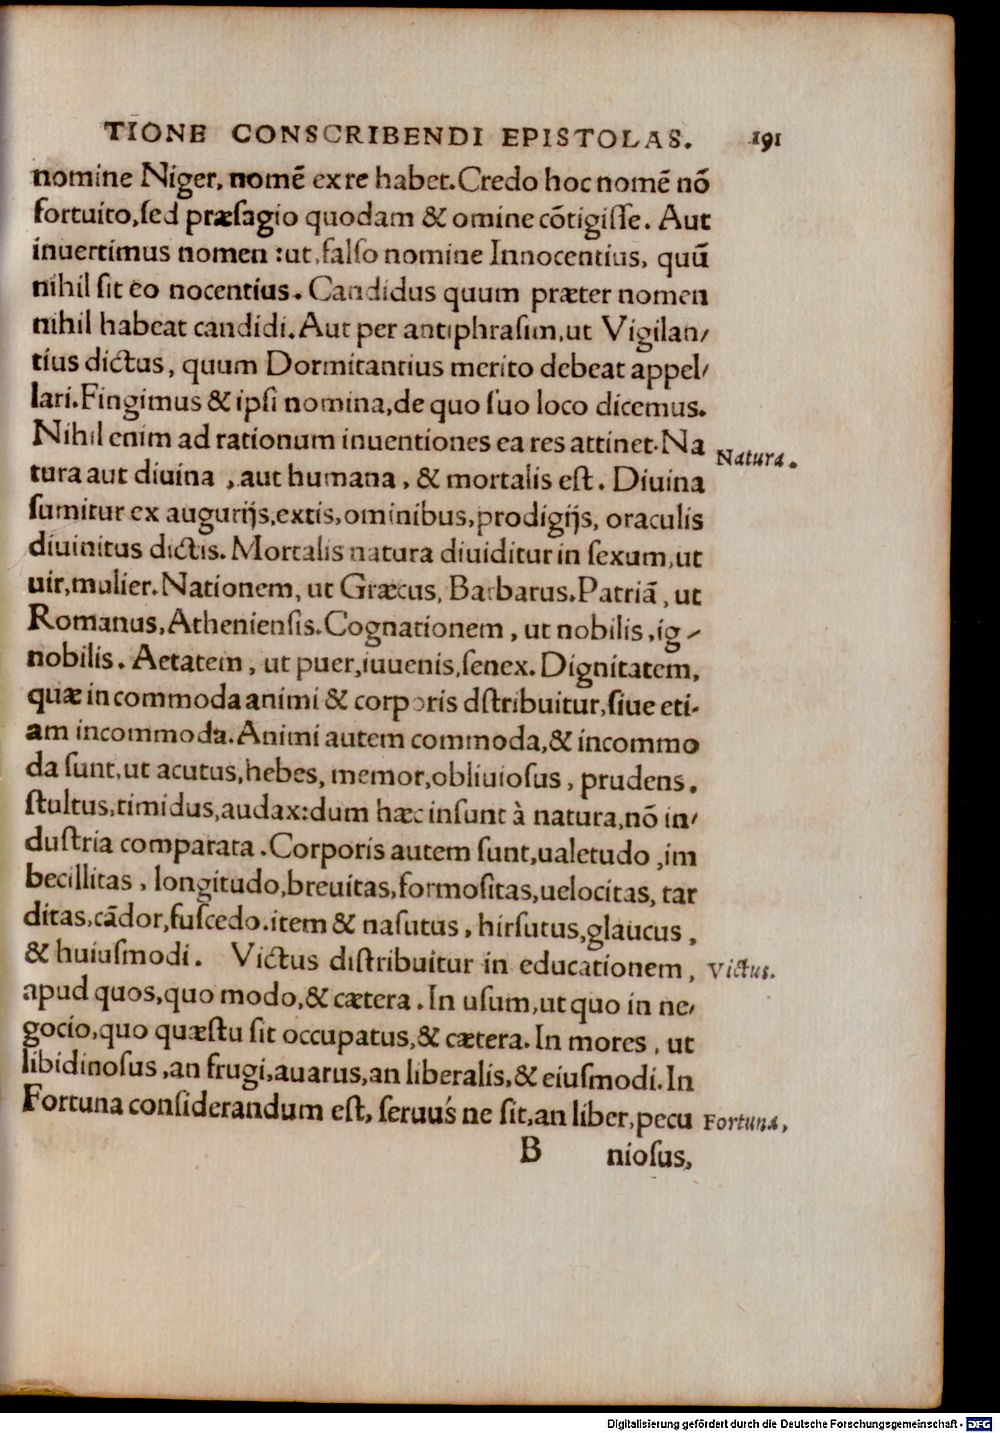 TIONE CONSCRIBENDI EPISTOLAS. 191
nomine Niger, nomẽ ex re habet. Credo hoc nomẽ nõ
fortuito, ſed præſagio quodam & omine cõtigiſſe. Aut
inuertimus nomen : ut, falſo nomine Innocentius, quũ
nihil ſit eo nocentius. Candidus quum præter nomen
nihil habeat candidi. Aut per antiphraſim, ut Vigilan/
tius dictus, quum Dormitantius merito debeat appel/
lari. Fingimus & ipſi nomina, de quo ſuo loco dicemus.
Nihil enim ad rationum inuentiones ea res attinet. Na
Natura.
tura aut diuina , aut humana , & mortalis eſt. Diuina
ſumitur ex augurijs, extis, ominibus, prodigijs, oraculis
diuinitus dictis. Mortalis natura diuiditur in ſexum, ut
uir, mulier. Nationem, ut Græcus, Barbarus. Patriã , ut
Romanus, Athenienſis. Cognationem , ut nobilis , ig/
nobilis. Aetatem , ut puer, iuuenis, ſenex. Dignitatem,
quæ in commoda animi & corporis dſtribuitur, ſiue eti-
am incommoda. Animi autem commoda, & incommo
da ſunt, ut acutus, hebes, memor, obliuioſus , prudens,
ſtultus, timidus, audax: dum hæc inſunt à natura, nõ in/
duſtria comparata . Corporis autem ſunt, ualetudo , im
becillitas , longitudo, breuitas, formoſitas, uelocitas, tar
ditas, cãdor, fuſcedo. item & naſutus , hirſutus, glaucus ,
& huiuſmodi. Victus diſtribuitur in educationem ,
Victus.
apud quos, quo modo, & cætera . In uſum, ut quo in ne/
gocio, quo quæſtu ſit occupatus, & cætera. In mores , ut
libidinoſus , an frugi, auarus, an liberalis, & eiuſmodi. In
Fortuna conſiderandum eſt, ſeruuś ne ſit, an liber, pecu
Fortuna,
B nioſus,
Digitalisierung gefördert durch die Deutsche Forschungsgemeinschaft - DFG